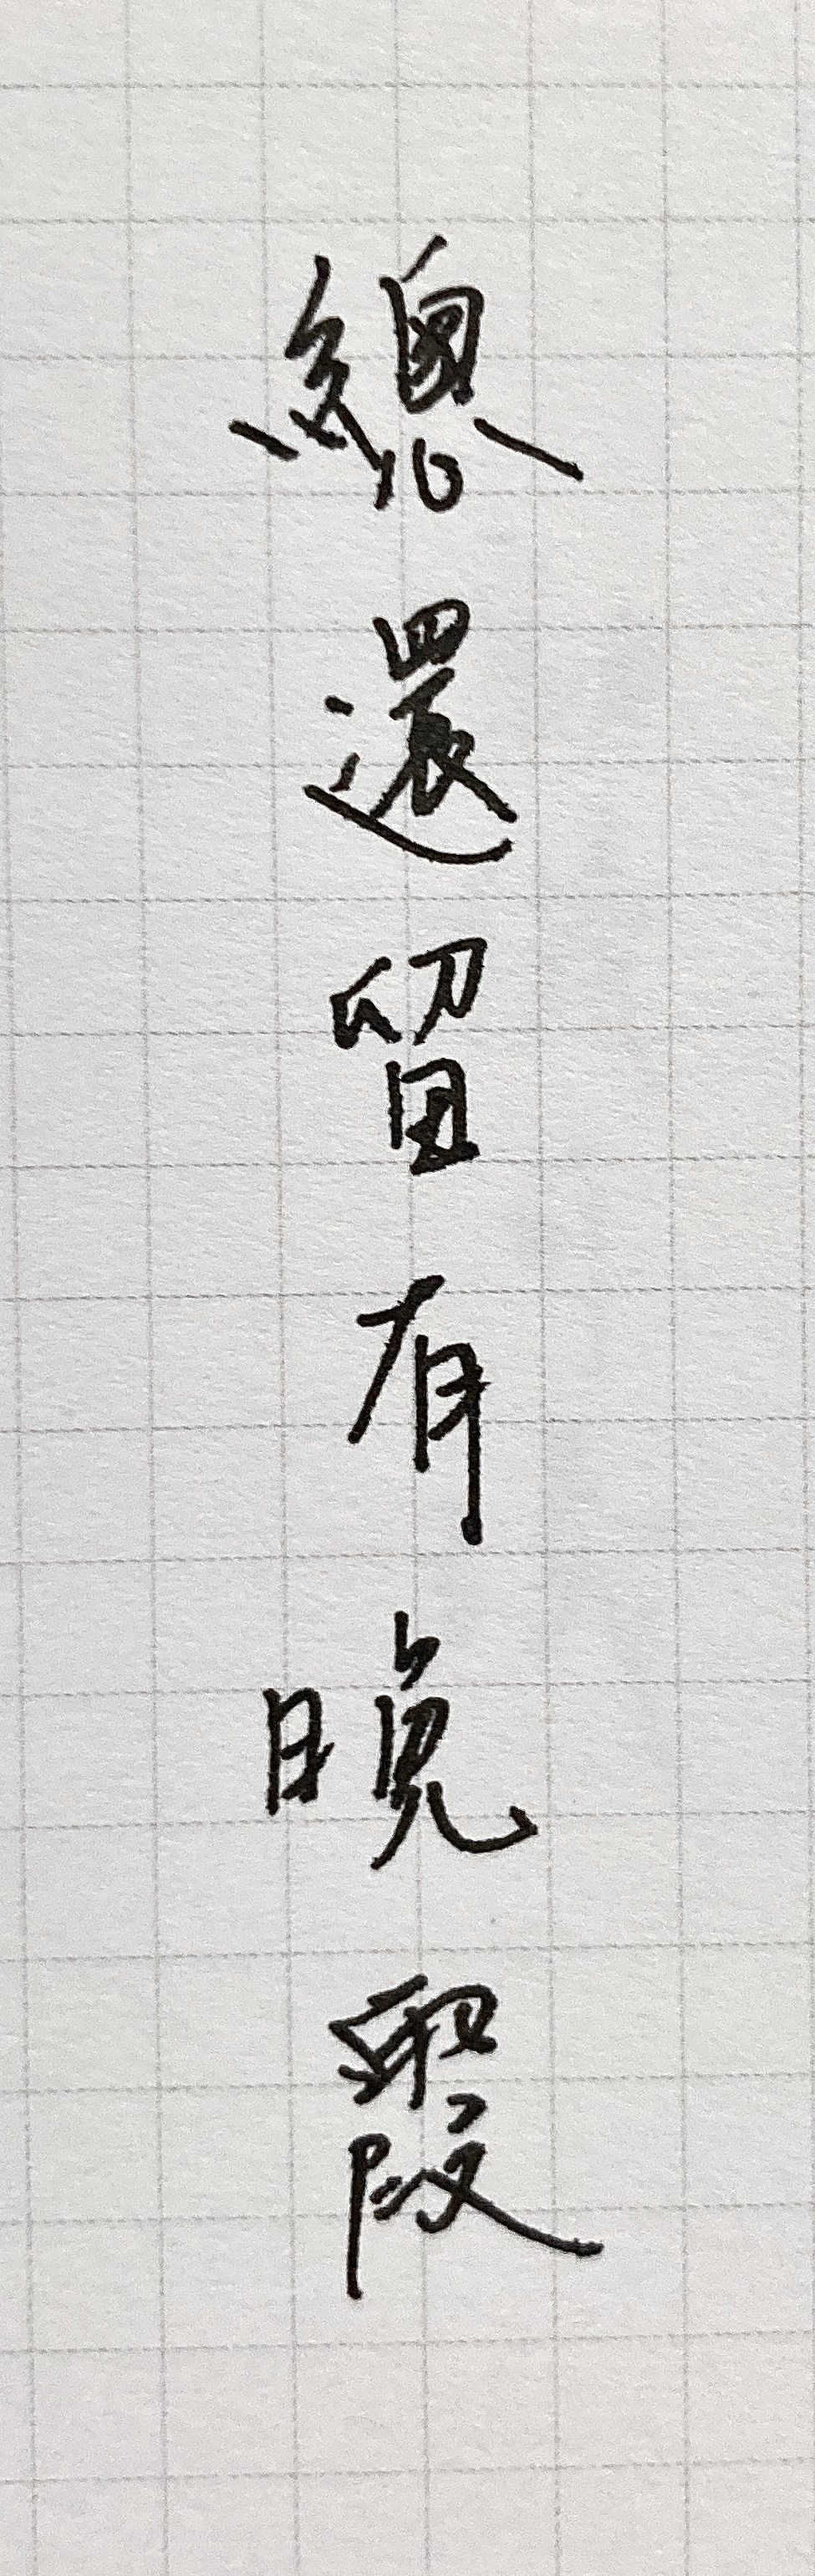 總還留有晚霞